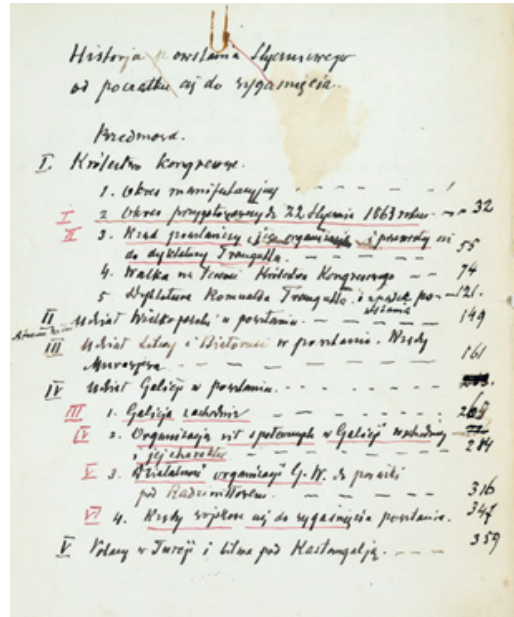 Historja powstania Styczniowego
od początku aż do wygaśnięcia.
Przedmowa.
I. Królestwo Kongresowe.
1. Okres manifestacyjny - - - - 1
I 2. Okres przygotowawczy do 22 Stycznia 1863 roku - - 32
II 3. Rząd powstańczy, jego organizacja i
55
do dyktatury Traugutta.
4. Walka na terenie Królestwa Kongresowego - - 74
5 Dyktatura Romualda Traugutta i upadek po- 121.
wstania
II Udział Wielkopolski w powstaniu. - - - - 149
III Udział Litwy i Białorusi w powstaniu. - Rządy
Murawjewa. - - - - - - 161
IV Udział Galicji w powstaniu. - - - - -
III 1. Galicja zachodnia - - - - - -
IV 2. Organizacja sił społecznych w Galicji wschodniej
i jej charakter - - - - - 284
V 3. Działalność organizacji G. W. do porażki
pod Radziwiłłowem. - - - - 316
VI 4. Kroki wojskowe aż do wygaśnięcia powstania. 347
V Polacy w Turcji i bitwa pod Kostangalją. - - - 359